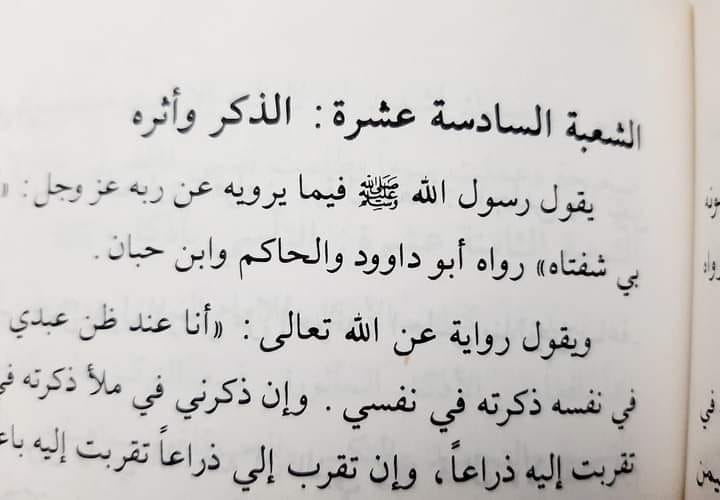 الشعبة السادسة عشرة: الذكر وأثره
يقول رسول الله ﷺ فيما يرويه عن ربه عز وجل: «
بي شفتاه» رواه أبو داوود والحاكم وابن حبان.
ويقول رواية عن الله تعالى: «أنا عند ظن عبدي
في نفسه ذكرته في نفسي. وإن ذكرني في ملأ ذكرته في
تقربت إليه ذراعاً، وإن تقرب إلي ذراعاً تقربت إليه